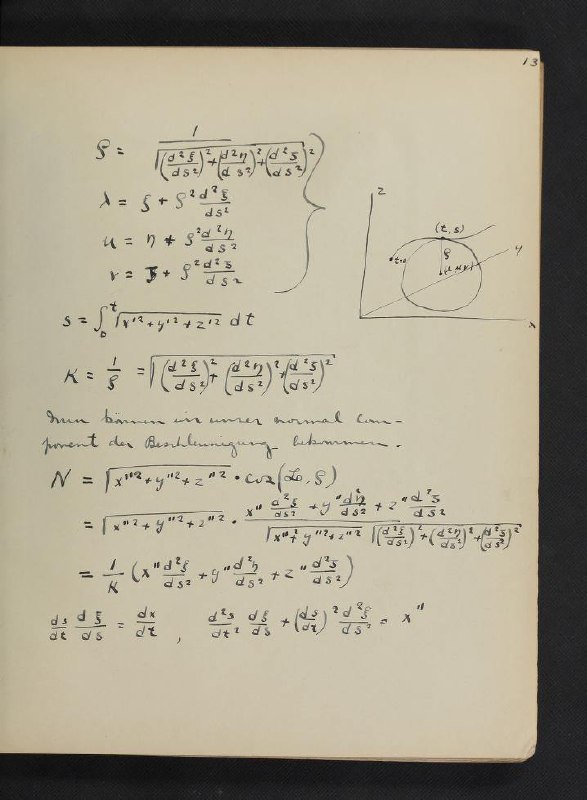 13
ρ = 1 / √((d²ξ/ds²)² + (d²η/ds²)² + (d²ζ/ds²)²)
λ = ξ + ρ² d²ξ/ds²
μ = η + ρ² d²η/ds²
ν = ζ + ρ² d²ζ/ds²
z
(t, s)
y
ρ
(λ μ ν)
x
s = ∫₀ᵗ √(x'² + y'² + z'²) dt
K = 1/ρ = √((d²ξ/ds²)² + (d²η/ds²)² + (d²ζ/ds²)²)
Nun können wir unser normal com-
ponent der Beschleunigung bekommen.
N = √(x''² + y''² + z''²) · cos(, ρ)
= √(x''² + y''² + z''²) · (x'' d²ξ/ds² + y'' d²η/ds² + z'' d²ζ/ds²) / (√(x''² + y''² + z''²) √((d²ξ/ds²)² + (d²η/ds²)² + (d²ζ/ds²)²))
= 1/K (x'' d²ξ/ds² + y'' d²η/ds² + z'' d²ζ/ds²)
ds/dt dξ/ds = dx/dt , d²s/dt² dξ/ds + (ds/dt)² d²ξ/ds² = x''